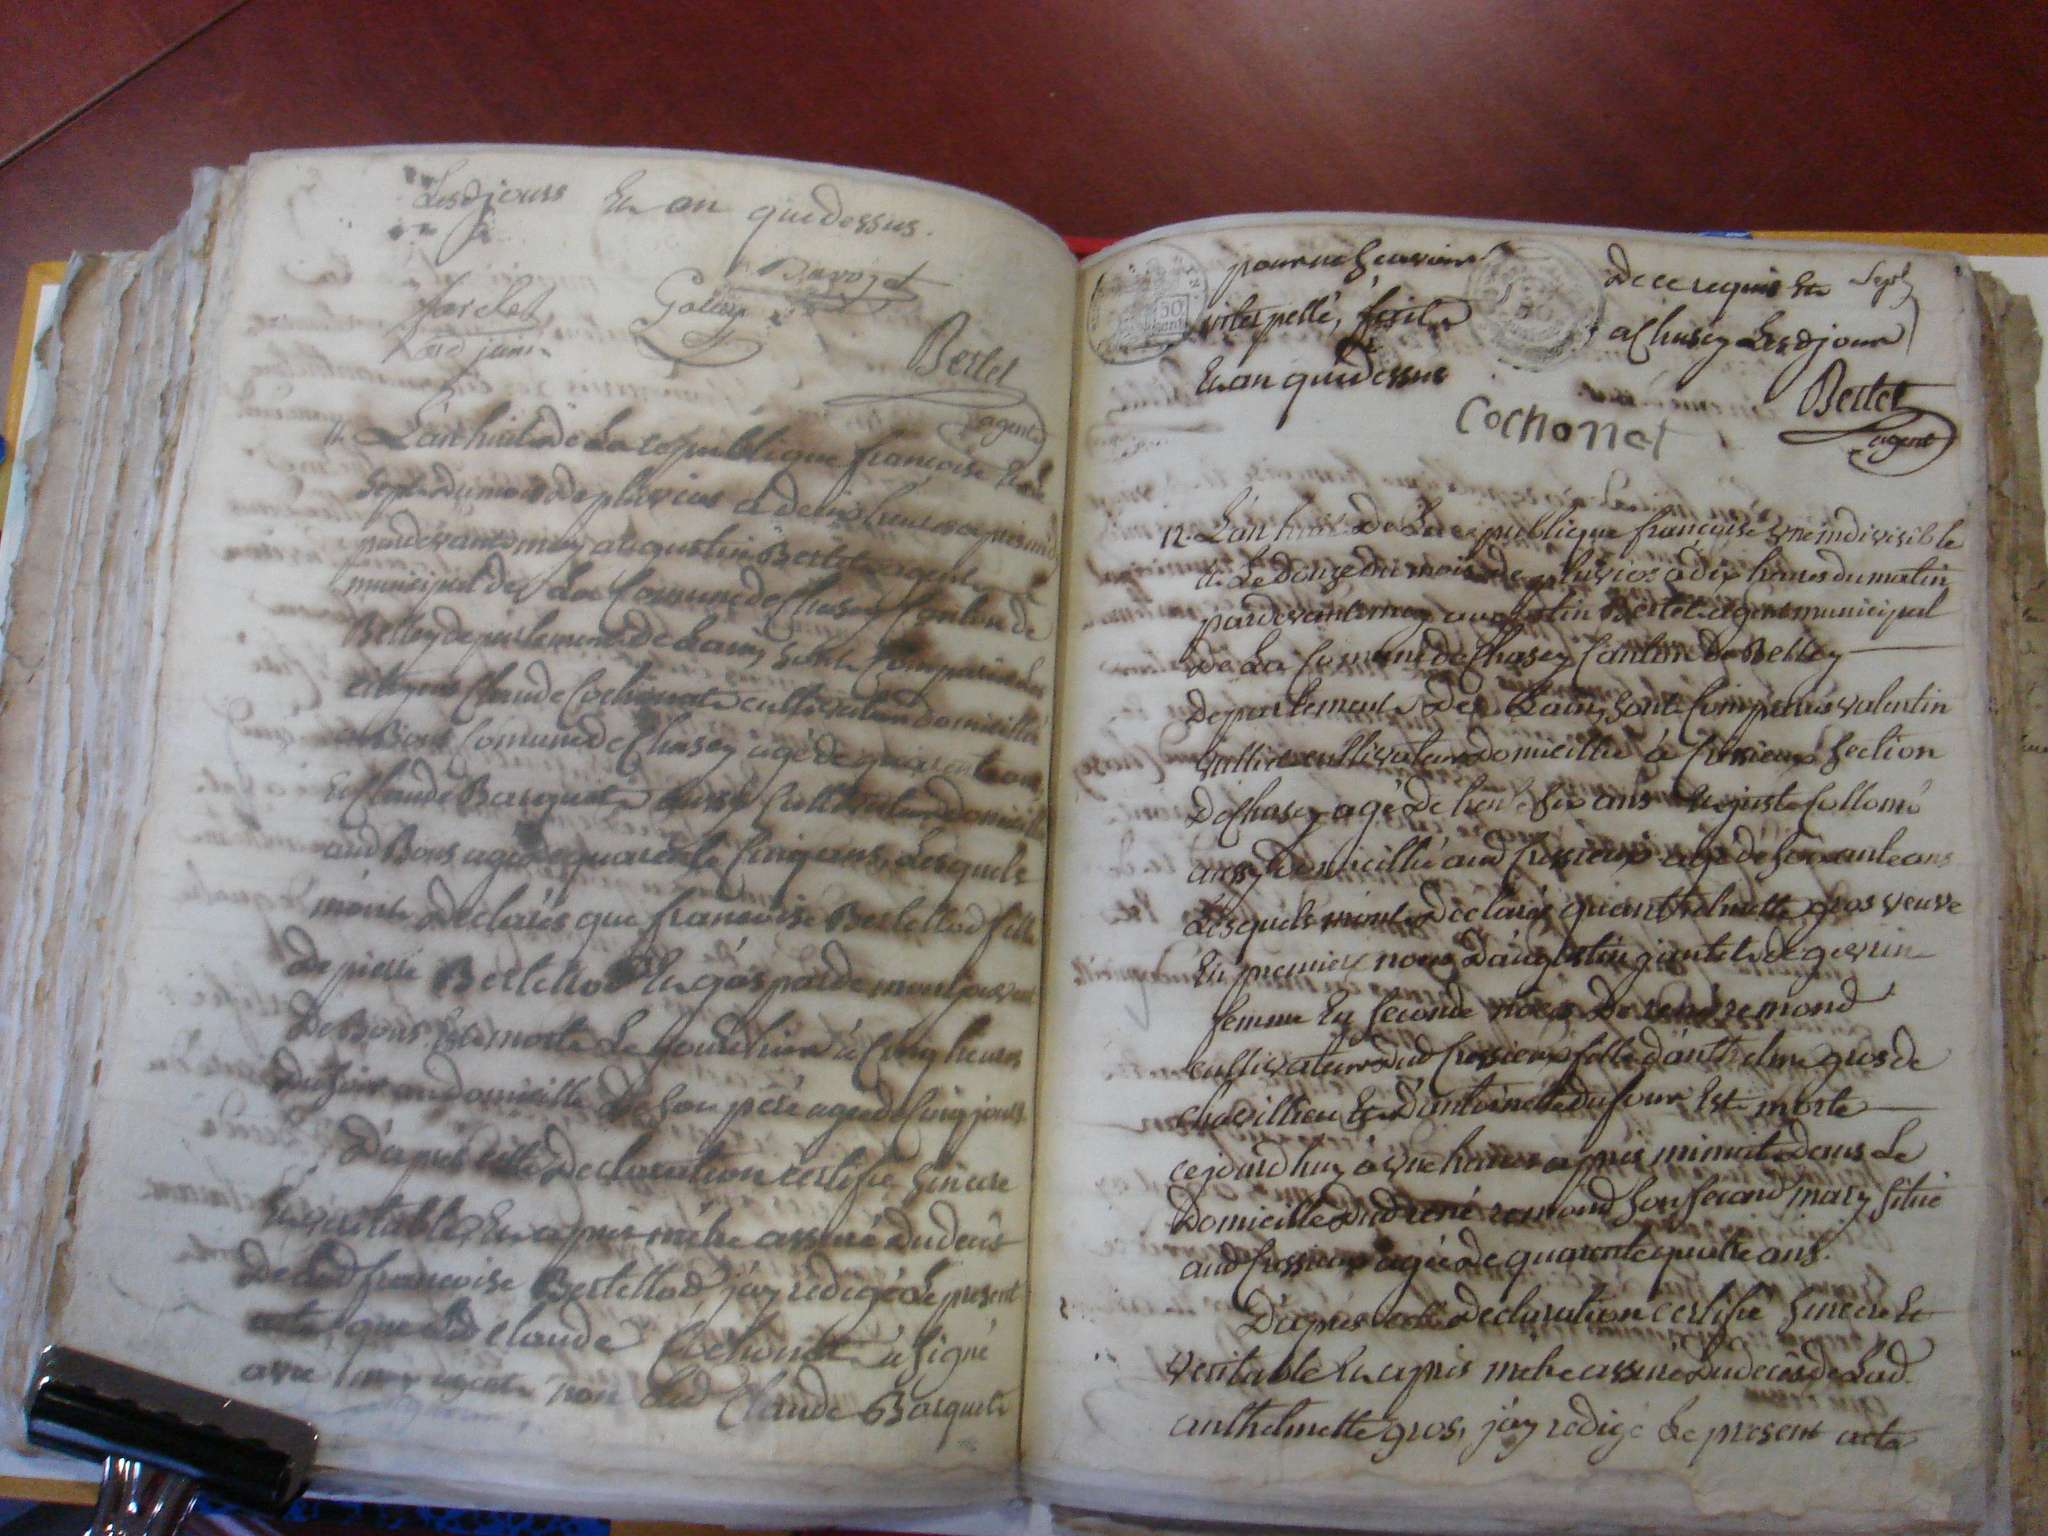 Lesd jours Et an que dessus.
Bavozat
Jarclet Goliey
ard jain
Bertet
agent
11. L'an huit de La republique francoise Et le
sept du mois de pluvios à deux heures apres midi
pardevant moy augustin Bertet agent
municipal de La Comune de Chasey Canton de
Belley departement de Lain, sont Comparus Les
citoyens Claude Cochonat cultivateur domicillié
a Bons Comune de Chasey agé de quarente ans
Et Claude Barquet aussy Cultivateur domicillié
aud Bons agé de quarente Cinq ans, Lesquels
m'ont declarés que francoise Bertellod fille
de pierre Bertellod Et gasparde montjovent
de Bons Est morte Le jourdhier à Cinq heures
du soir au domicille de son pére agée de Cinq jours
D'apres cette declaration certifié sincere
Et veritable, Et apres m'etre assuré du decès
de lad francoise Bertellod j'ay redigé Le present
acte, que led Claude Cochonat à signé
avec moy agent non Led Claude Barquet
pour ne scavoir de ce requis Et Sept
interpellé, fait a Chasey Lesd jour
Et an que dessus
Cochonat
Bertet
agent
12. L'an huit de La republique francoise une indivisible
Et Le douze du mois de pluvios à dix heures du matin
pardevant moy augustin Bertet agent municipal
de La Comune de Chasey Canton de Belley
departement de Lain, sont Comparus valentin
cultivateur domicillié à Cressieux section
de Chasey agé de trente six ans Et juste Collomb
aussy domicillié aud Cressieux agé de soixante ans
Lesquels m'ont declarés qu'anthelmette gros veuve
En premiere noces d'augustin jantet de gevrin
femme En seconde noces de rené remond
cultivateur dud Cressieux fille d'anthelme gros de
chavillieu Et d'antoinette dufour Est morte
cejourd'huy à une heure apres minuit dans Le
domicille dud rené remond son second mary situé
aud Cressieux agée de quarente quatre ans.
D'apres cette declaration certifié sincere Et
veritable Et apres m'etre assuré du decès de Lad.
anthelmette gros, j'ay redigé Le present acte